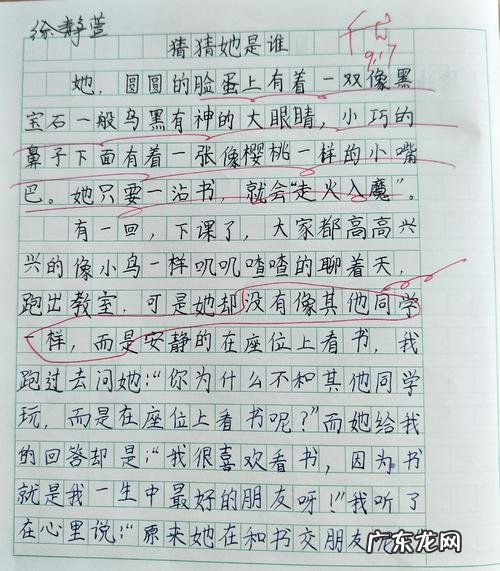 徐静萱
猜猜她是谁
9.17
她，圆圆的脸蛋上有着一双像黑
宝石一般乌黑有神的大眼睛，小巧的
鼻子下面有着一张像樱桃一样的小嘴
巴。她只要一沾书，就会“走火入魔”。
有一回，下课了，大家都高高兴
兴的像小鸟一样叽叽喳喳的聊着天，
跑出教室，可是她却没有像其他同学
一样，而是安静的在座位上看书，我
跑过去问她：“你为什么不和其他同学
玩，而是在座位上看书呢？”而她给我
的回答却是：“我很喜欢看书，因为书
就是我一生中最好的朋友呀！”我听了
在心里说：“原来她在和书交朋友
广东龙网
www.gdhzlw.com